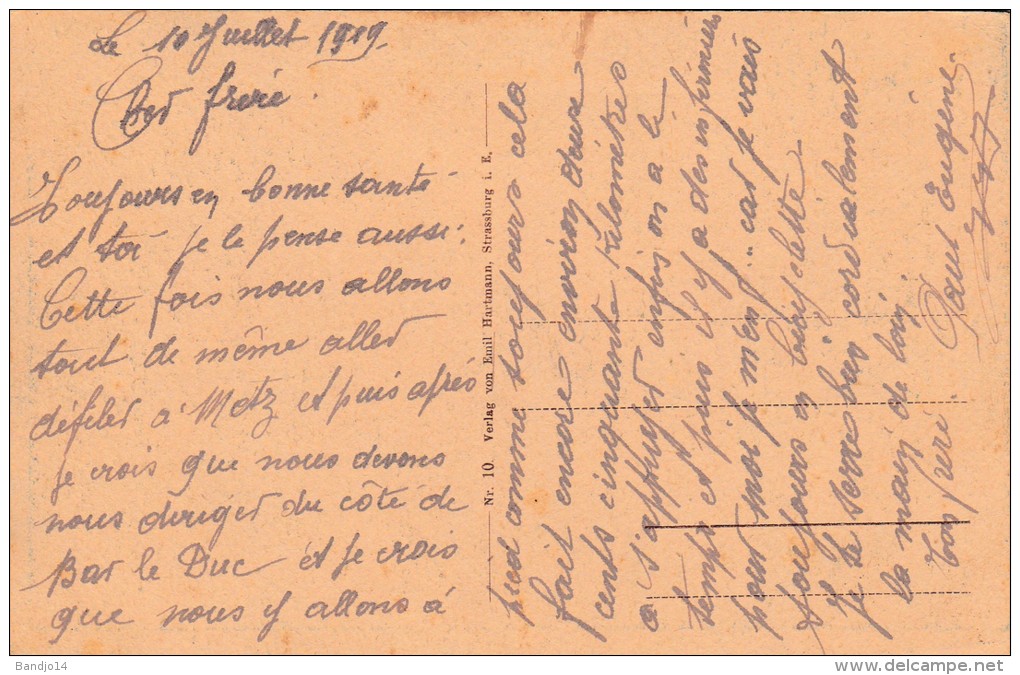 Le 10 Juillet 1919.
Cher frère.
Toujours en bonne santé
et toi je le pense aussi.
Cette fois nous allons
tout de même aller
défiler à Metz et puis après
je crois que nous devons
nous deriger du côté de
Bar le Duc et je crois
que nous y allons à
pied comme toujours cela
fait encore environ deux
cents cinquante kilomètres
a s'appuyer enfin on a le
temps et puis il y a des infirmiers
pour moi je m'en car je vais
toujours en biciclette.
Je te serre bien cordialement
la main de loin.
Ton frère. Paul Eugène.
Nr. 10. Verlag von Emil Hartmann, Strassburg i. E.
Bandjo14
www.delcampe.net